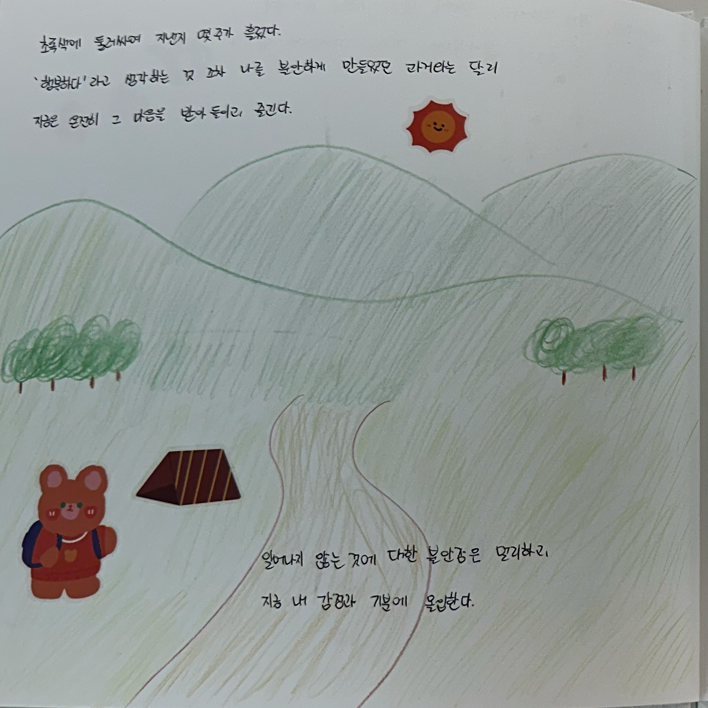 초록색에 둘러싸여 지낸지 몇 주가 흘렀다.
'행복하다'라고 생각하는 것 조차 나를 불안하게 만들었던 과거와는 달리
지금은 온전히 그 마음을 받아들이고, 즐긴다.
일어나지 않는 것에 대한 불안감은 멀리하고,
지금 내 감정과 기분에 몰입한다.